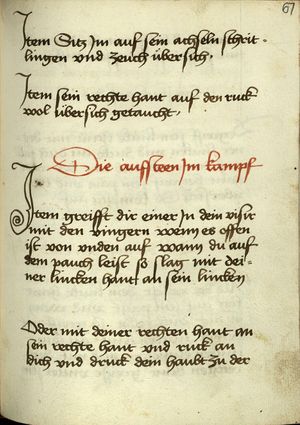 67
Item Sitz Im auf sein achseln schrit-
lingen vnd zeuch übersich,
Item sein rechte hant auf den ruck
wol übersich getaucht,
Die aufsteen Im kampf
Item greifft dir einer In dein visir
mit den vingern wenn es offen
ist von vnden auf wann du auf
dem pauch leist so slag mit dei-
ner lincken hant an sein lincken
Oder mit deiner rechten hant an
sein rechte hant vnd ruck an
dich vnd druck dein haubt zu der